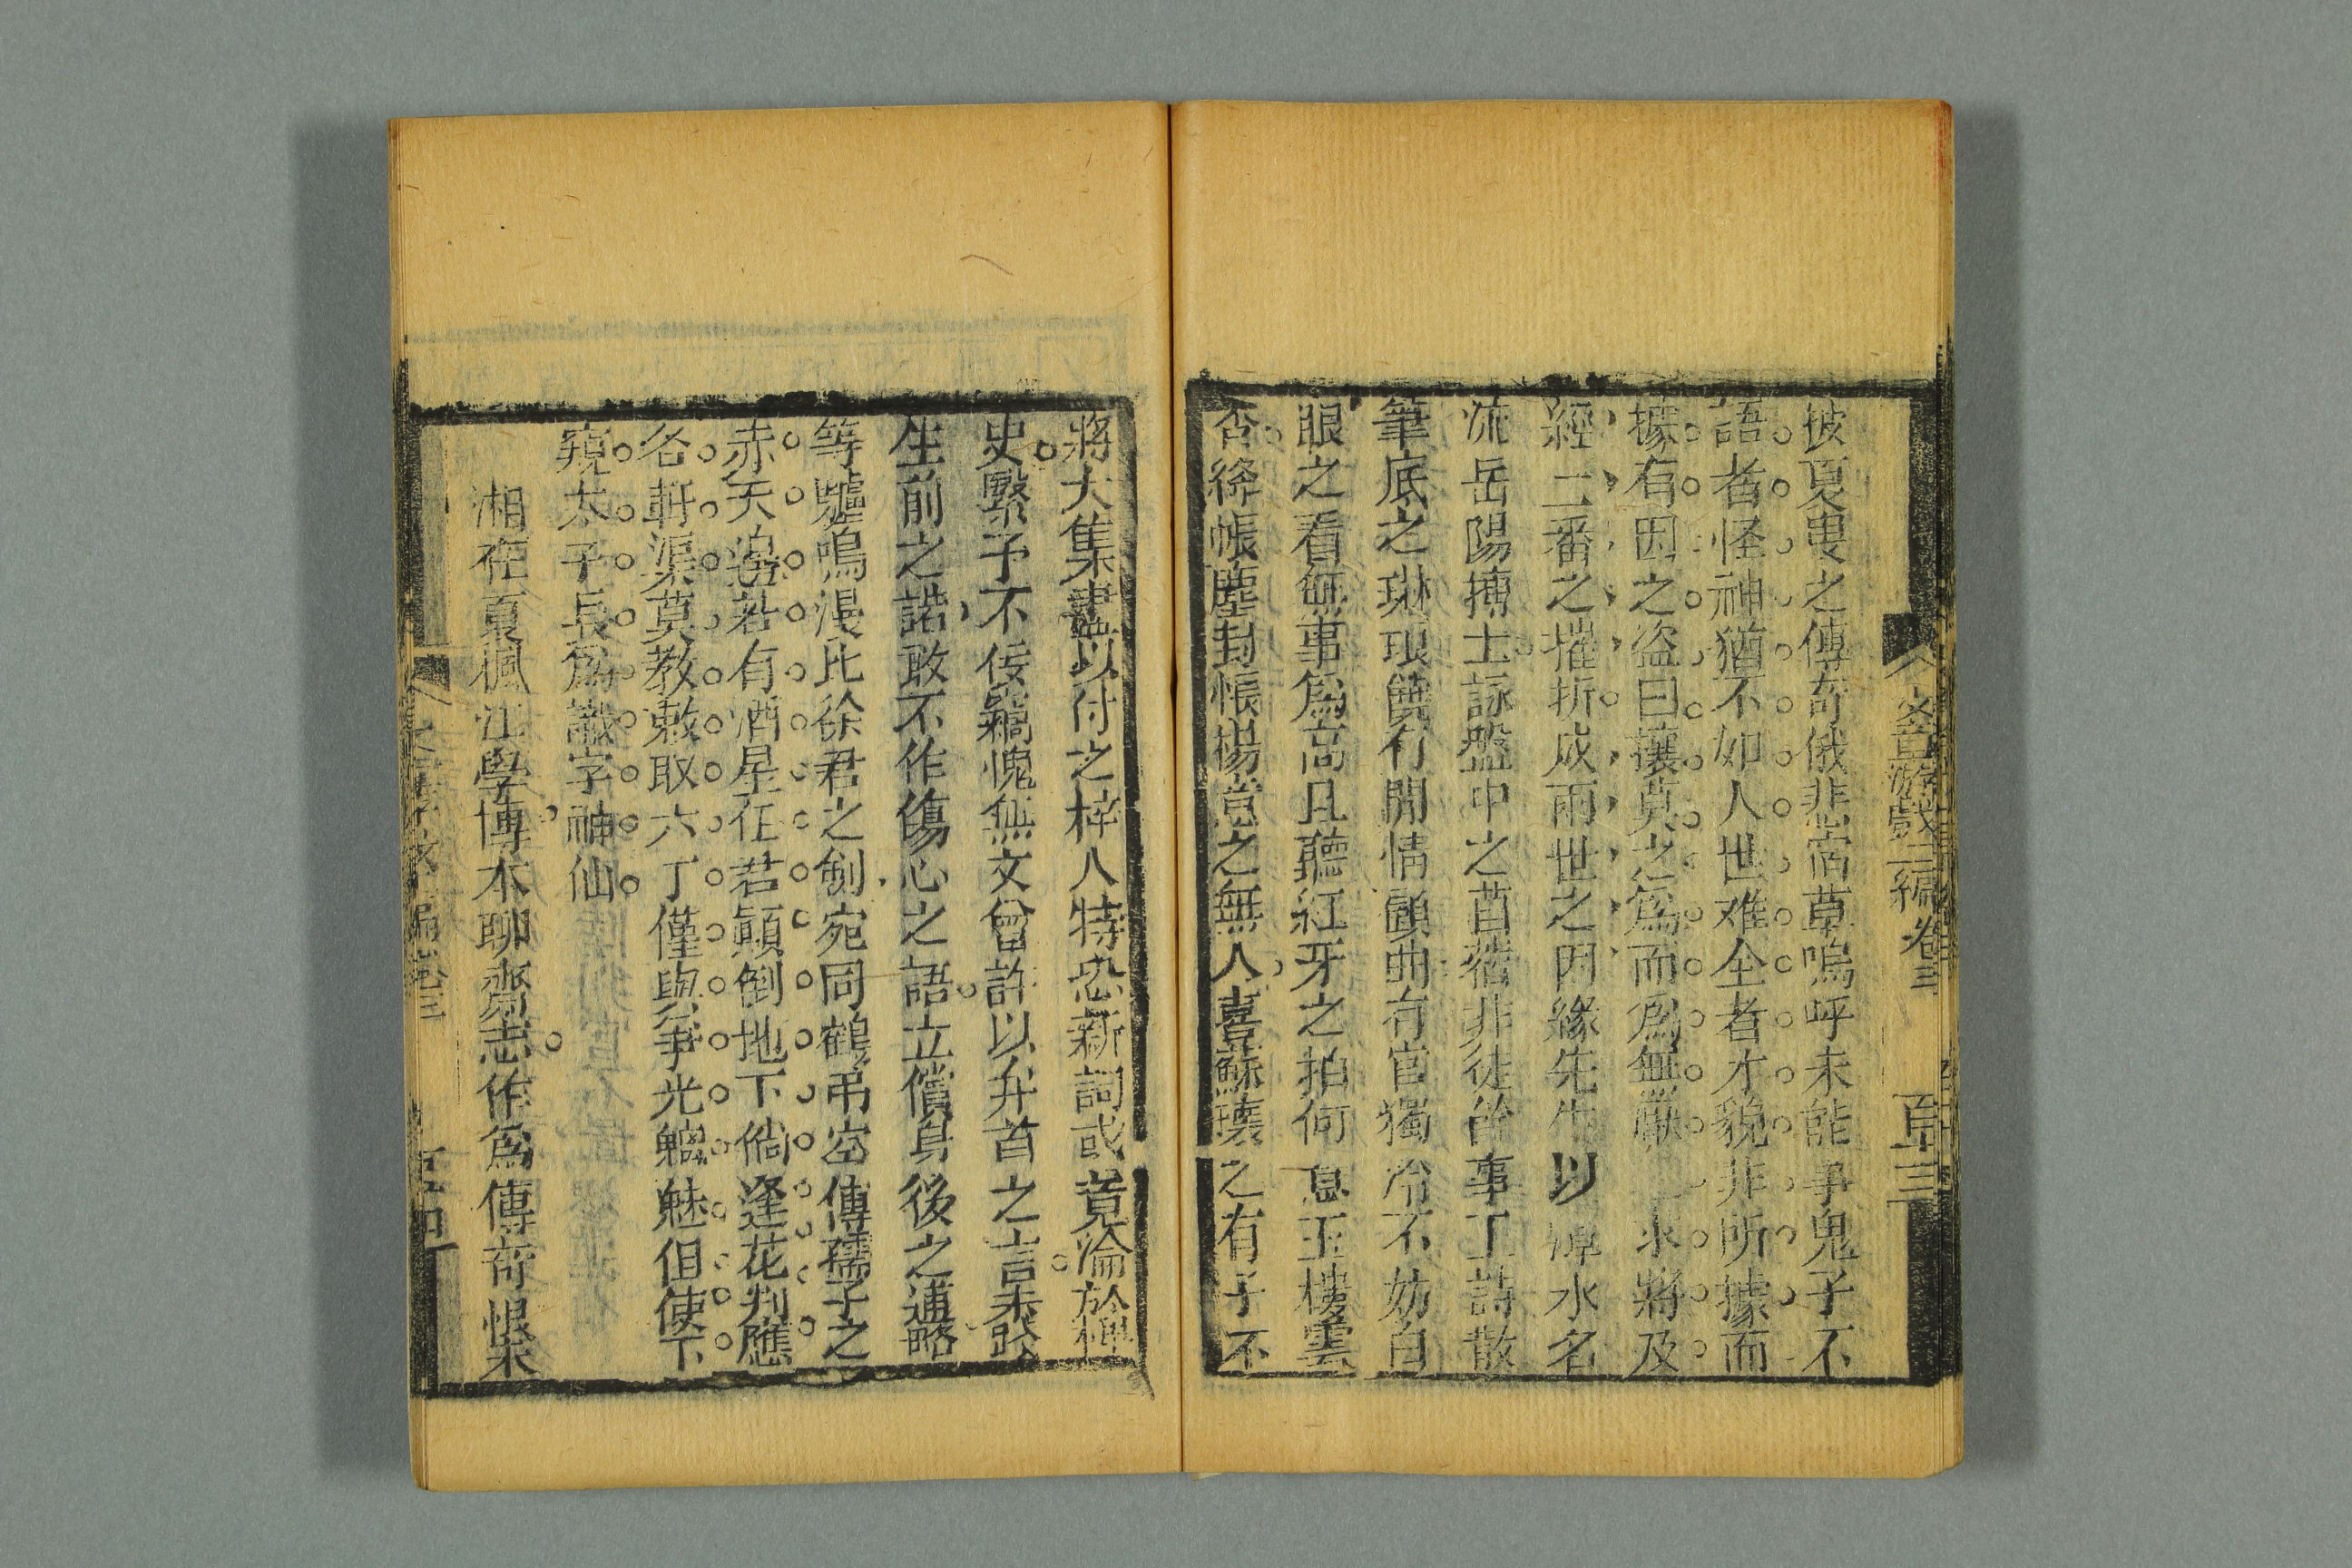 文章游戲二編 卷三 百十三
披夏叟之傳奇俄悲宿草嗚呼未能爭鬼子不
語者怪神猶不如人世难全者才貌非所據而
據有因之盜曰攘莫之爲而爲無獻 求將及
經二番之摧折成兩世之因緣先生以 水名
流岳陽搏士詠盤中之苜蓿非徒飽事工詩散
筆底之琳琅饒有閒情顧曲有官獨冷不妨白
眼之看無事爲高且聽紅牙之拍何 玉樓雲
杳絳帳塵封悵揚意之無人喜蘇瓌之有子不
將大集盡以付之梓人特恐新詞或竟淪於裨
史緊予不佞竊愧無文曾許以弁首之言未踐
生前之諾敢不作傷心之語立償身後之逋略
等驢鳴漫比徐君之劍宛同鶴弔空傳孺子之
赤天邊若有酒星任君顛倒地下倘逢花判應
容軒渠莫教敕取六丁僅與爭光魑魅但使下
窺太子長爲識字神仙
湘在夏楓江學博本聊齋志作爲傳奇恨未
卷三